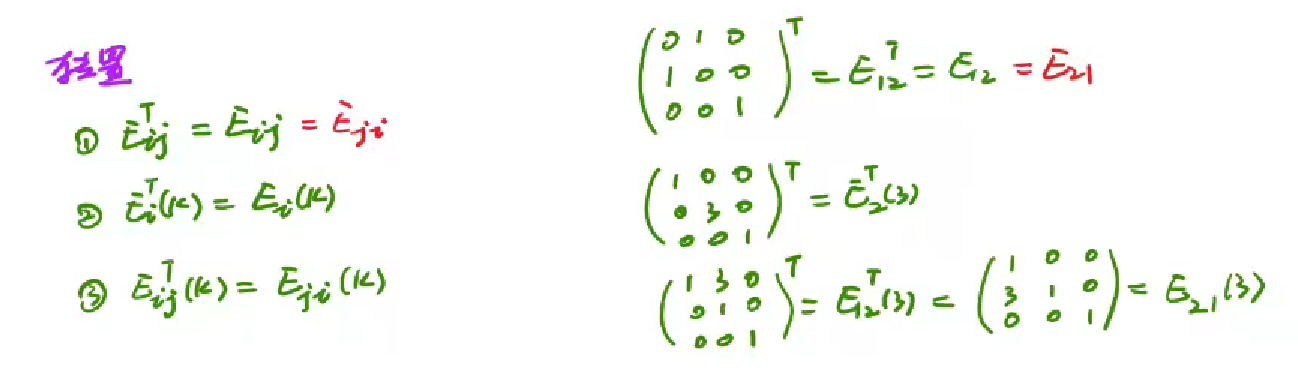 转置
① E_{ij}^T = E_{ij} = E_{ji}
② E_i^T(k) = E_i(k)
③ E_{ij}^T(k) = E_{ji}(k)
( 0 1 0
1 0 0
0 0 1 )^T = E_{12}^T = E_{12} = E_{21}
( 1 0 0
0 3 0
0 0 1 )^T = E_2^T(3)
( 1 3 0
0 1 0
0 0 1 )^T = E_{12}^T(3) = ( 1 0 0
3 1 0
0 0 1 ) = E_{21}(3)